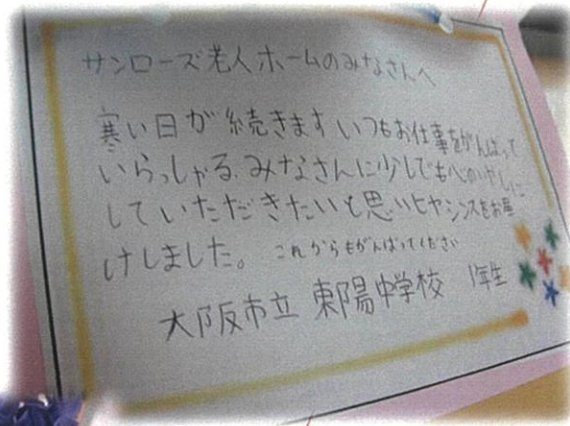 サンローズ老人ホームのみなさんへ
寒い日が続きます いつもお仕事をがんばって
いらっしゃる、みなさんに少しでも心のいやしに
していただきたいと思いヒヤシンスをお届
けしました。 これからもがんばってください
大阪市立 東陽中学校 1年生